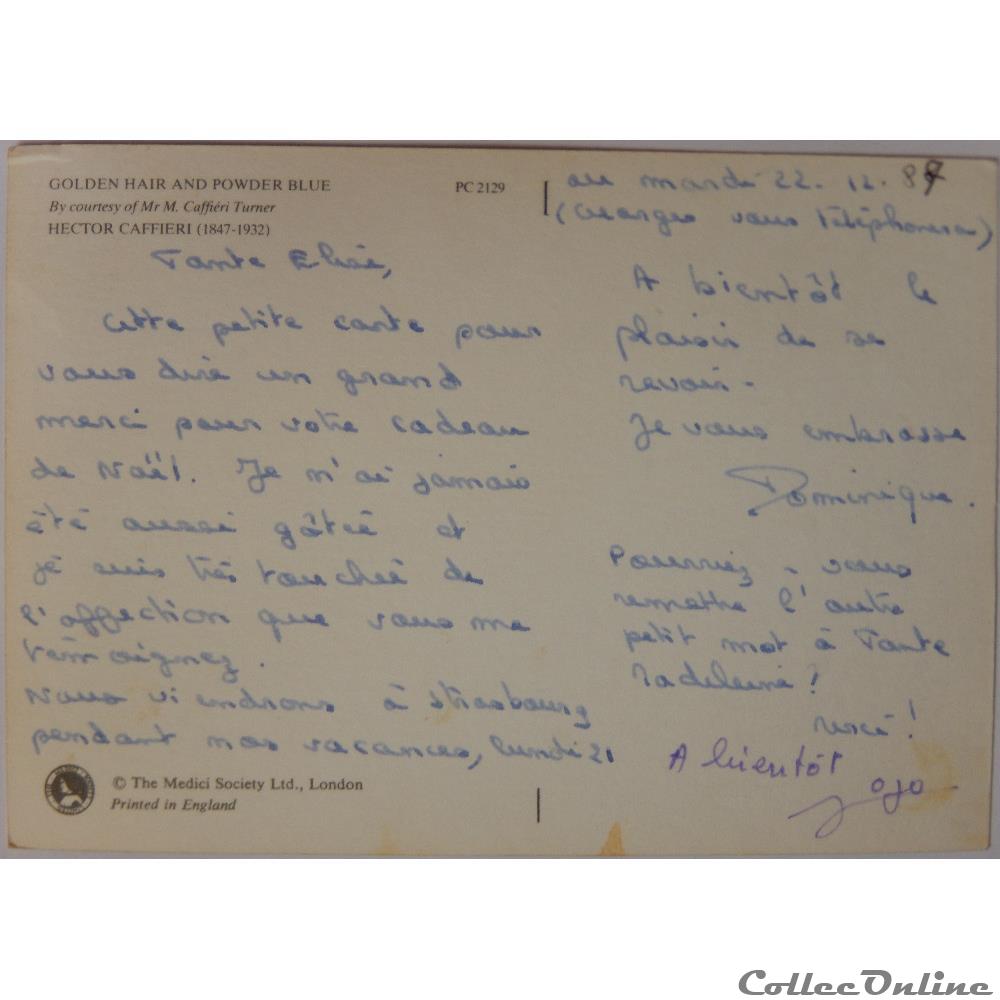 GOLDEN HAIR AND POWDER BLUE
PC 2129
By courtesy of Mr M. Caffiéri Turner
HECTOR CAFFIERI (1847-1932)
Tante Elise,
Cette petite carte pour
vous dire un grand
merci pour votre cadeau
de Noël. Je n'ai jamais
été aussi gâtée et
je suis très touchée de
l'affection que vous me
témoignez.
Nous viendrons à Strasbourg
pendant nos vacances, lundi 21
au mardi 22.12.87
(Georges vous téléphonera)
A bientôt le
plaisir de se
revoir.
Je vous embrasse
Dominique.
Pourriez-vous
remettre l'autre
petit mot à Tante
Madeleine!
A bientôt
Jojo
© The Medici Society Ltd., London
Printed in England
CollecOnline